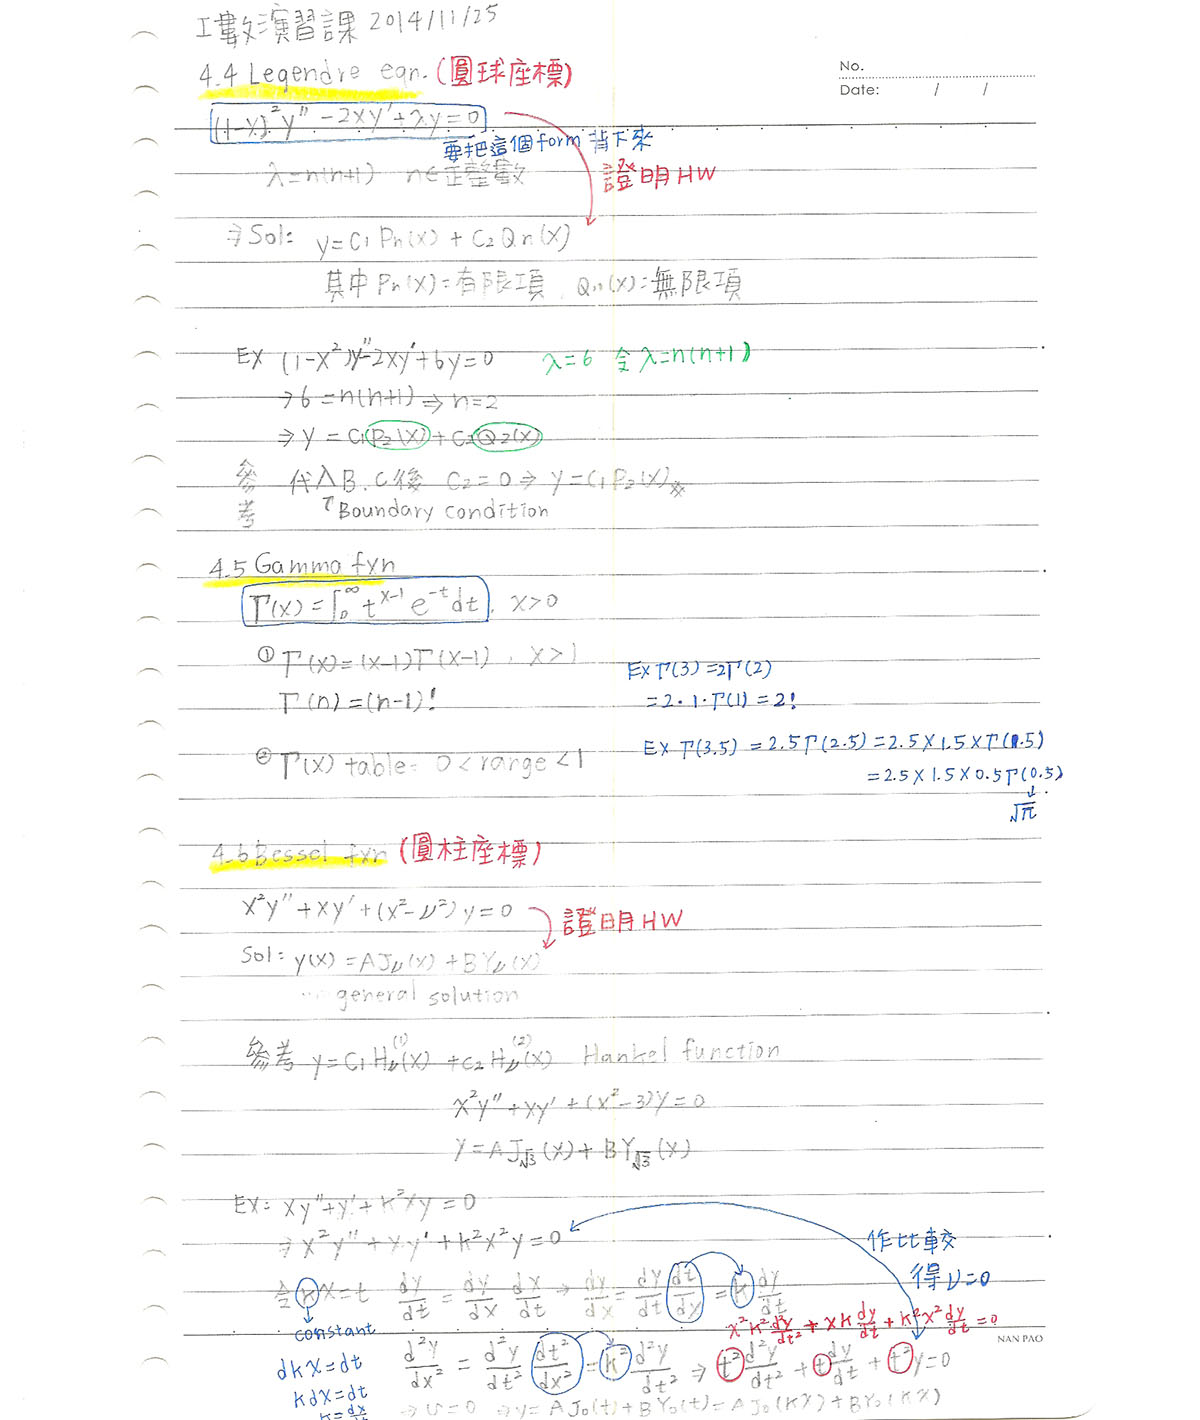 工數演習課 2014/11/25
4.4 Legendre eqn. (圓球座標)
No.
Date: / /
(1-x)²y'' - 2xy' + λy = 0
要把這個form 背下來
λ=n(n+1) n∈正整數
證明HW
⇒Sol: y=C1Pn(x) + C2Qn(x)
其中Pn(x)=有限項, Qn(x)=無限項
EX (1-x²)y''-2xy'+6y=0 λ=6 令λ=n(n+1)
→6=n(n+1)⇒n=2
⇒y=C1P2(x)+C2Q2(x)
參考 代入B.C後 C2=0⇒y=C1P2(x)#
↑Boundary condition
4.5 Gamma fxn
Γ(x)=∫₀^∞ t^(x-1) e^(-t) dt, x>0
① Γ(x)=(x-1)Γ(x-1), x>1
EX Γ(3)=2Γ(2)
Γ(n)=(n-1)!
=2·1·Γ(1)=2!
EX Γ(3.5)=2.5Γ(2.5)=2.5×1.5×Γ(1.5)
② Γ(x) table: 0<range<1
=2.5×1.5×0.5Γ(0.5)
√π
4.6 Bessel fxn (圓柱座標)
x²y''+xy'+(x²-ν²)y=0
證明HW
Sol: y(x)=AJν(x)+BYν(x)
general solution
參考 y=C1Hν^(1)(x)+C2Hν^(2)(x) Hankel function
x²y''+xy'+(x²-3)y=0
y=AJ√3(x)+BY√3(x)
EX: xy''+y'+k²xy=0
⇒x²y''+xy'+k²x²y=0
作比較
得ν=0
令kx=t dy/dt=dy/dx dx/dt → dy/dx=dy/dt dt/dx=k dy/dt
constant
x²k² dy/dt² + xk dy/dt + k²x² dy/dt=0
NAN PAO
dkx=dt
d²y/dx²=d²y/dt² dt²/dx²=k² d²y/dt² ⇒ t² d²y/dt² + t dy/dt + t²y=0
kdx=dt
k=dx
→ν=0 ⇒y=AJ0(t)+BY0(t)=AJ0(kx)+BY0(kx)